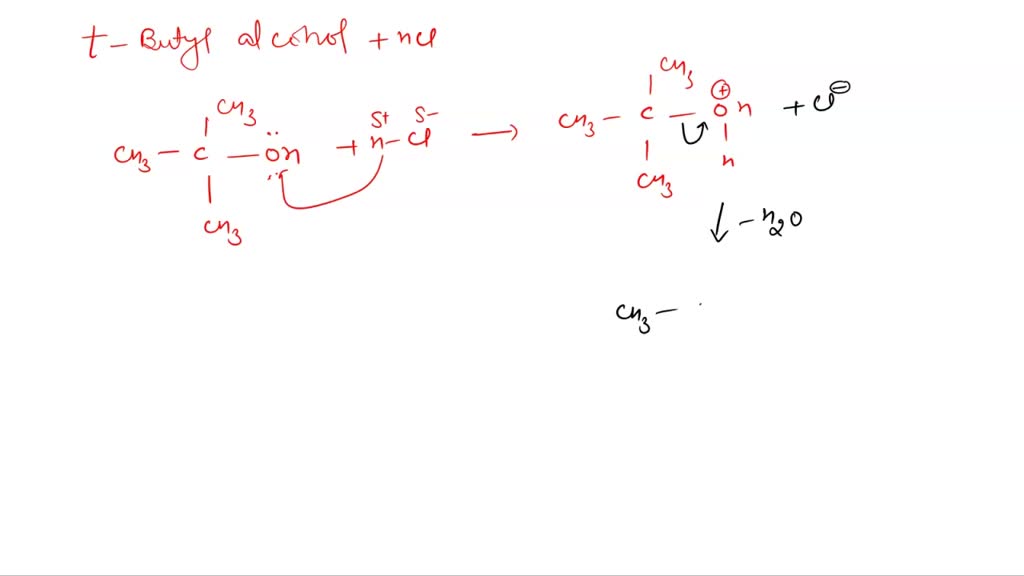 t- Butyl alcohol + HCl
CH3 CH3
CH3 - C - ÖH + H - Cl → CH3 - C - O H + Cl⊖
δ+ δ- ⊕
CH3 H
CH3
↓ - H2O
CH3 -